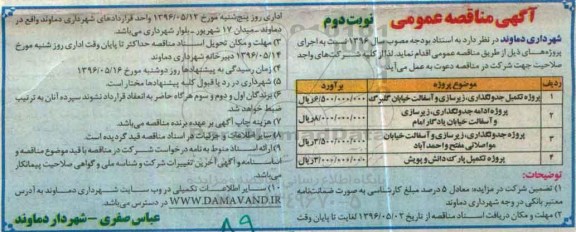 آگهی مناقصه عمومی نوبت دوم
شهرداری دماوند در نظر دارد به استناد بودجه مصوب سال ۱۳۹۶ نسبت به اجرای
پروژه‌های ذیل از طریق مناقصه عمومی اقدام نماید. لذا از کلیه شرکت‌های واجد
صلاحیت جهت شرکت در مناقصه دعوت به عمل می‌آید.
ردیف موضوع پروژه برآورد
۱ پروژه تکمیل جدولگذاری، زیرسازی و آسفالت خیابان گلبرگ ۶/۵۰۰/۰۰۰/۰۰۰ریال
۲ پروژه ادامه جدولگذاری، زیرسازی
و آسفالت خیابان یادگار امام ۸/۰۰۰/۰۰۰/۰۰۰ریال
۳ پروژه جدولگذاری، زیرسازی و آسفالت خیابان
مواصلاتی مفتح و احمدآباد ۳/۵۰۰/۰۰۰/۰۰۰ریال
۴ پروژه تکمیل پارک دانش و پویش ۳/۰۰۰/۰۰۰/۰۰۰ریال
توضیحات:
۱) تضمین شرکت در مزایده: معادل ۵ درصد مبلغ کارشناسی به صورت ضمانتنامه
معتبر بانکی در وجه شهرداری دماوند
۲) مهلت و مکان دریافت اسناد مناقصه از تاریخ ۱۳۹۶/۰۵/۰۲ لغایت تا پایان وقت
اداری روز پنج‌شنبه مورخ ۱۳۹۶/۰۵/۱۲ واحد قراردادهای شهرداری دماوند واقع در
دماوند ـ میدان ۱۷ شهریور ـ بلوار شهرداری می‌باشد.
۳) مهلت و مکان تحویل اسناد مناقصه حداکثر تا پایان وقت اداری روز شنبه مورخ
۱۳۹۶/۰۵/۱۴ دبیرخانه شهرداری دماوند
۴) زمان رسیدگی به پیشنهادها روز دوشنبه مورخ ۱۳۹۶/۰۵/۱۶
۵) شهرداری در رد یا قبول کلیه پیشنهادها مختار است.
۶) برندگان اول و دوم و سوم هرگاه حاضر به انعقاد قرارداد نشوند سپرده آنان به ترتیب
ضبط خواهد شد.
۷) هزینه چاپ آگهی بر عهده برنده مناقصه می‌باشد.
۸) سایر اطلاعات و جزئیات در اسناد مناقصه قید گردیده است.
۹) ارائه اسناد منوط به نامه درخواست شرکت در مناقصه با قید موضوع مناقصه و
اساسنامه و آگهی آخرین تغییرات شرکت و شناسه ملی و گواهی صلاحیت پیمانکار
می‌باشد.
۱۰) سایر اطلاعات تکمیلی در وب سایت شهرداری دماوند به آدرس
WWW.DAMAVAND.IR در دسترس می‌باشد.
عباس صفری - شهردار دماوند
۸۹